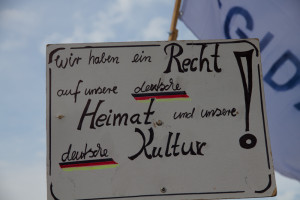 wir haben ein Recht
auf unsere deutsche
Heimat und unsere
deutsche Kultur !
GIDA